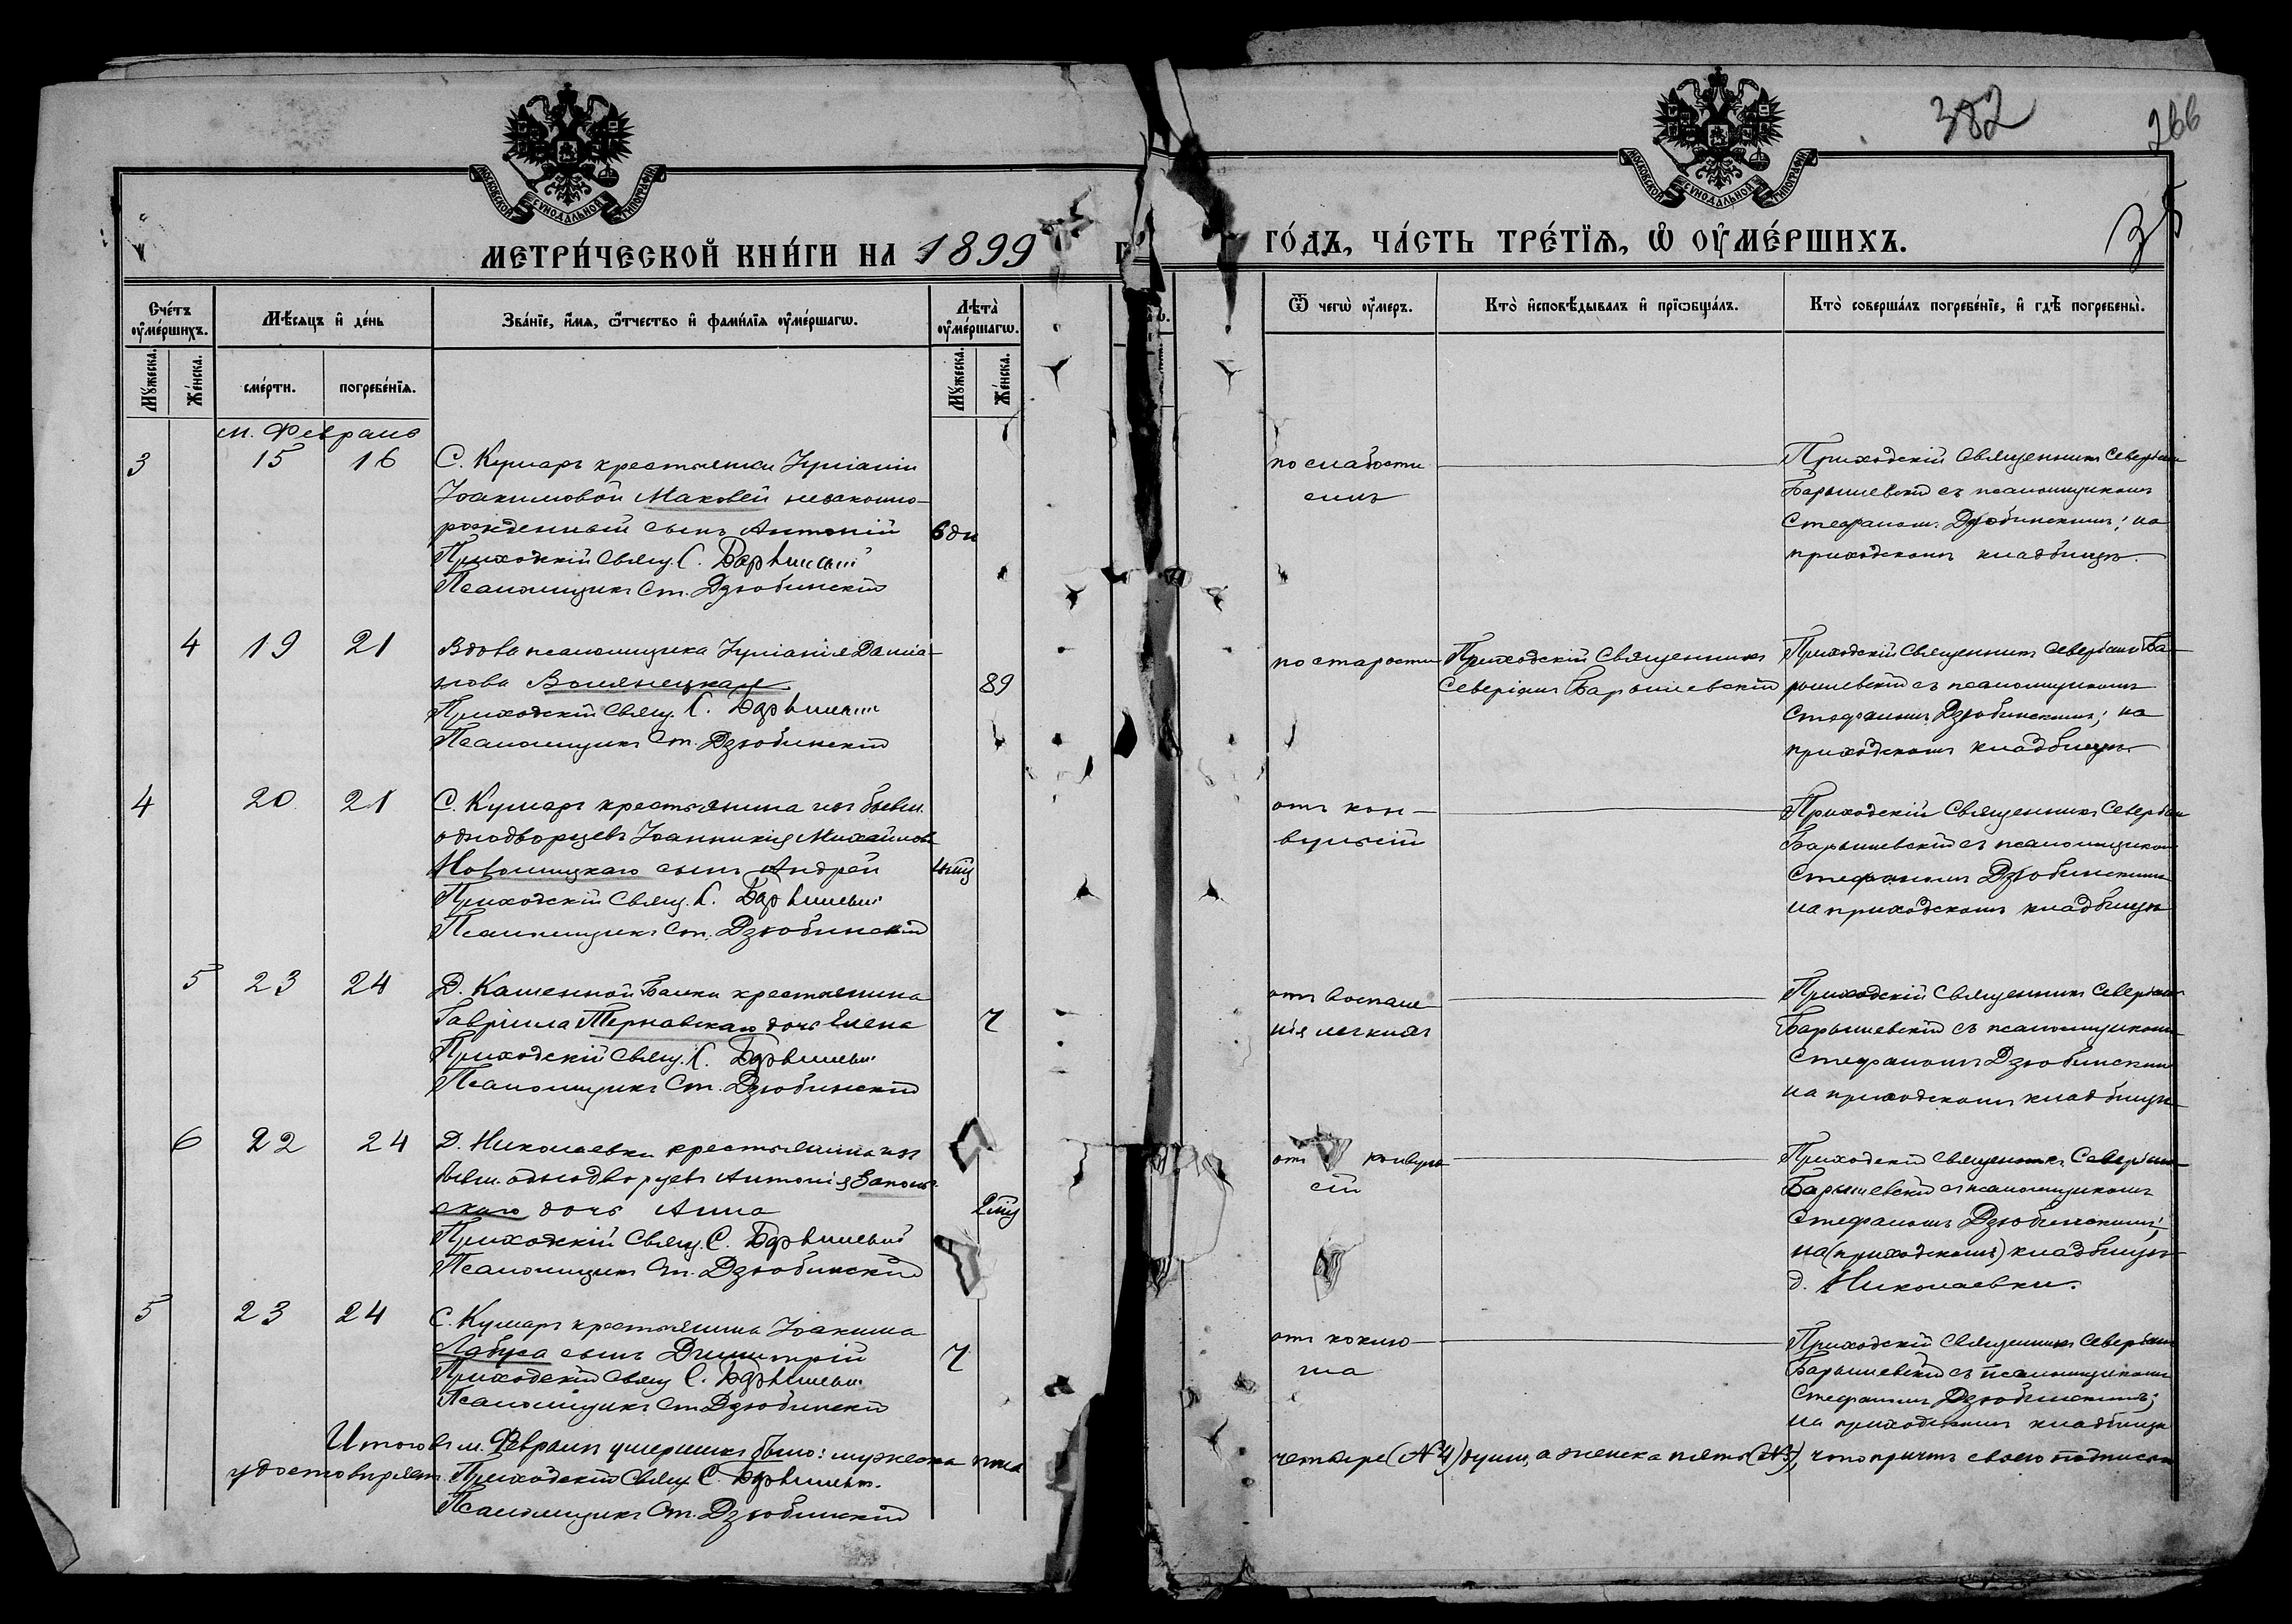 382
266
МОСКОВСКОЙ СѴНОДАЛЬНОЙ ТИПОГРАФІИ
МОСКОВСКОЙ СѴНОДАЛЬНОЙ ТИПОГРАФІИ
МЕТРИ́ЧЕСКОЙ КНИ́ГИ НА 1899
ГО́ДЪ, ЧА́СТЬ ТРЕ́ТІѦ, Ѡ ОУ҆МЕ́РШИХЪ.
Сче́тъ оу҆ме́ршихъ.
Мѣ́сяцъ и҆ де́нь
Зва́нїе, и҆́мя, ѻ҆́тчество и҆ фами́лїя оу҆ме́ршагѡ.
Лѣта̀ оу҆ме́ршагѡ.
Ѿ чегѡ̀ оу҆́меръ.
Кто̀ и҆сповѣ́дывалъ и҆ прїѡбща́лъ.
Кто̀ соверша́лъ погребе́нїе, и҆ гдѣ̀ погребены̀.
Мꙋ́жеска.
Же́нска.
сме́рти.
погребе́нїя.
Мꙋ́жеска.
Же́нска.
м. Февраль
3 15 16 С. Кумаръ крестьянки Іуліаніи
Іоакимовой Маковей незаконно-
рожденный сынъ Антоній 6 дн
Приходскій Свящ. С. Барышевскій
Псаломщикъ Ст. Дзюбинскій
по слабости
силъ
Приходскій Священникъ Северіанъ
Барышевскій съ псаломщикомъ
Стефаномъ Дзюбинскимъ; на
приходскомъ кладбищѣ.
4 19 21 Вдова псаломщика Іуліанія Даміа-
нова Волянецкая 89
Приходскій Свящ. С. Барышевскій
Псаломщикъ Ст. Дзюбинскій
по старости
Приходскій Священникъ
Северіанъ Барышевскій
Приходскій Священникъ Северіанъ Ба-
рышевскій съ псаломщикомъ
Стефаномъ Дзюбинскимъ; на
приходскомъ кладбищѣ
4 20 21 С. Кумаръ крестьянина изъ бывш.
однодворцевъ Іоанникія Михайлова
Новомицкаго сынъ Андрей
Приходскій Свящ. С. Барышевскій
Псаломщикъ Ст. Дзюбинскій
отъ кон-
вульсій
Приходскій Священникъ Северіанъ
Барышевскій съ псаломщикомъ
Стефаномъ Дзюбинскимъ
на приходскомъ кладбищѣ
5 23 24 Д. Каменной Балки крестьянина
Гавріила Тернавскаго дочь Елена
Приходскій Свящ. С. Барышевскій
Псаломщикъ Ст. Дзюбинскій
отъ воспале
нія легкихъ
Приходскій Священникъ Северіанъ
Барышевскій съ псаломщикомъ
Стефаномъ Дзюбинскимъ
на приходскомъ кладбищѣ
6 22 24 Д. Николаевки крестьянина изъ
бывш. однодворцевъ Антонія Заполь-
скаго дочь Анна 2 мц
Приходскій Свящ. С. Барышевскій
Псаломщикъ Ст. Дзюбинскій
отъ конвуль
сій
Приходскій Священникъ Северіанъ
Барышевскій съ псаломщикомъ
Стефаномъ Дзюбинскимъ;
на (приходскомъ) кладбищѣ
д. Николаевки.
5 23 24 С. Кумаръ крестьянина Іоакима
Лабуса сынъ Димитрій
Приходскій Свящ. С. Барышевскій
Псаломщикъ Ст. Дзюбинскій
отъ коклю
ша
Приходскій Священникъ Северіанъ
Барышевскій съ псаломщикомъ
Стефаномъ Дзюбинскимъ;
на приходскомъ кладбищѣ
Итого въ м. Февралѣ умершихъ было: мужеска пола
четыре (№ 4) души, а женска пять (№ 5), что причтъ своею подписью
удостовѣряетъ. Приходскій Свящ. С. Барышевскій.
Псаломщикъ Ст. Дзюбинскій